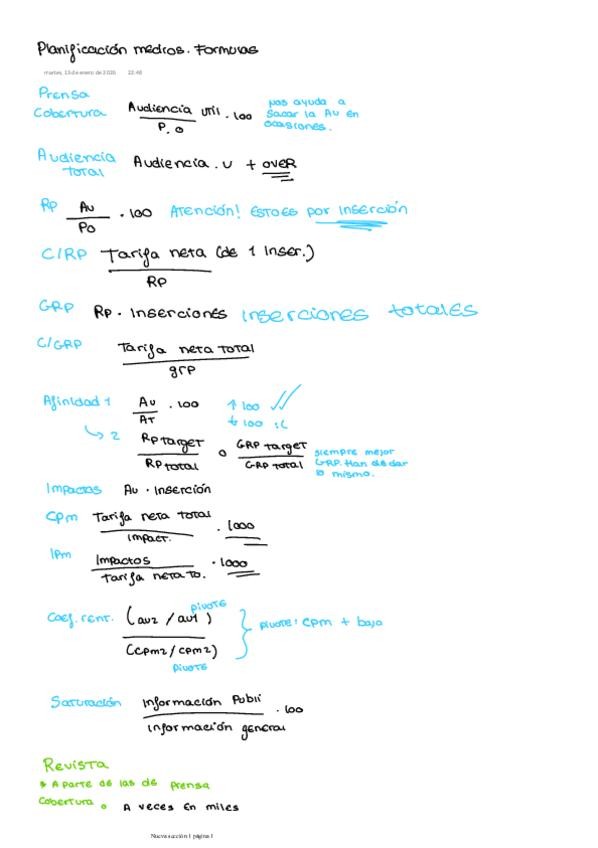 Planificación medios. Formulas
martes, 13 de enero de 2026 22:48
Prensa
Cobertura Audiencia util . 100
P. O
nos ayuda a
sacar la Au en
ocasiones.
Audiencia
total
Audiencia . U + oveR
Rp Au . 100 Atención! Esto es por inserción
Po
C/RP Tarifa neta (de 1 Inser.)
RP
GRP Rp . Inserciones inserciones totales
C/GRP Tarifa neta Total
grp
Afinidad 1 Au . 100 ↑ 100 ✓✓
AT ↓ 100 :(
↳ 2 Rp target o GRP target
RP total GRP total
siempre mejor
GRP. Han de dar
lo mismo.
Impactos Au . Inserción
Cpm Tarifa neta total . 1000
impact.
Ipm Impactos . 1000
Tarifa neta to.
Coef. rent. (au2 / au1) pivote
(cpm2 / cpm2)
pivote
pivote: cpm + bajo
Saturación Información Publi . 100
información general
Revista
* A parte de las de prensa
Cobertura o A veces en miles
Nueva sección 1 página 1